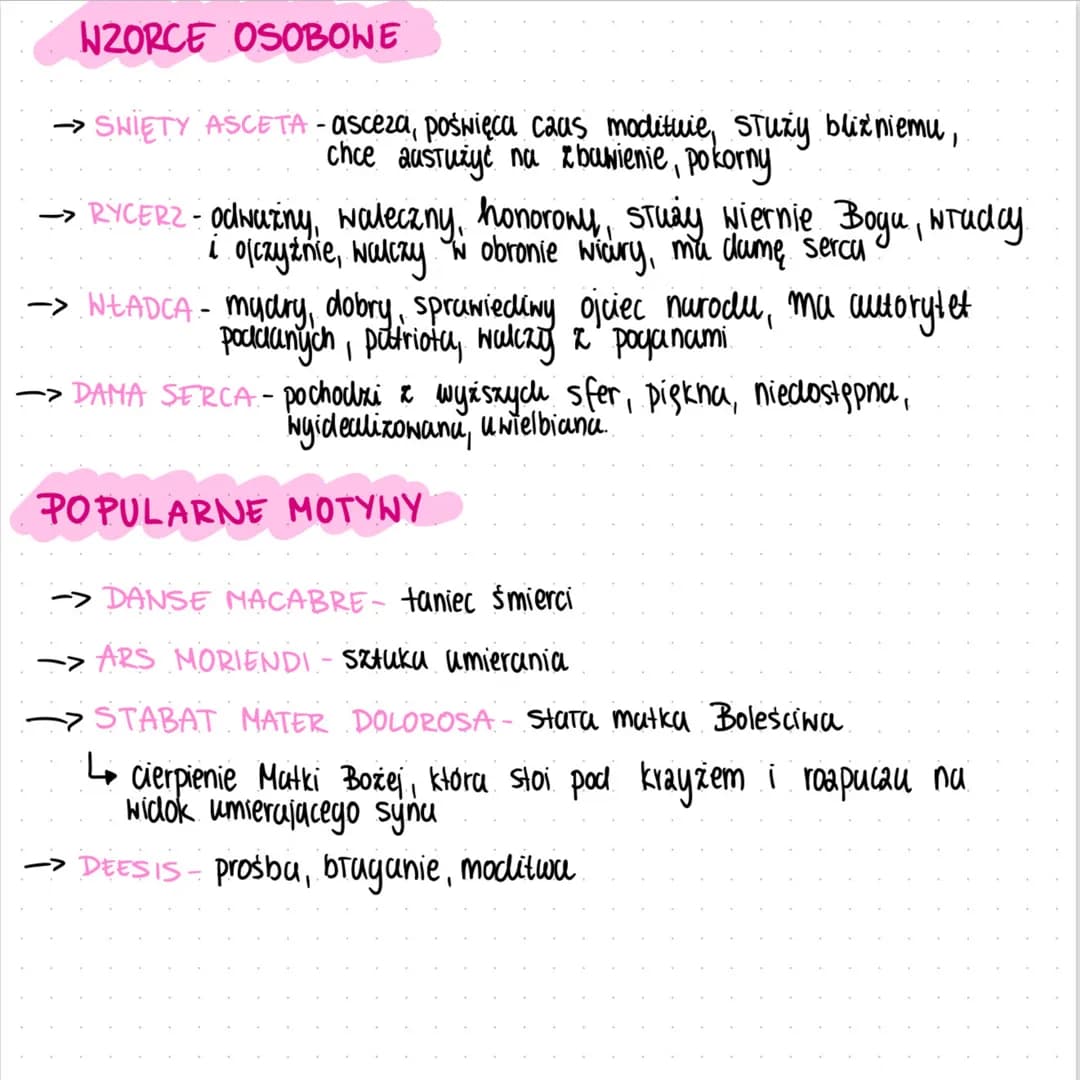 WZORCE OSOBOWE
→ ŚWIĘTY ASCETA - asceza, poświęca czas modlitwie, służy bliźniemu,
chce zasłużyć na zbawienie, pokorny
→ RYCERZ - odważny, waleczny, honorowy, służy wiernie Bogu, władcy
i ojczyźnie, walczy w obronie wiary, ma damę serca
→ WŁADCA - mądry, dobry, sprawiedliwy ojciec narodu, ma autorytet
poddanych, patriota, walczy z poganami
→ DAMA SERCA - pochodzi z wyższych sfer, piękna, niedostępna,
wyidealizowana, uwielbiana.
POPULARNE MOTYWY
→ DANSE MACABRE - taniec śmierci
→ ARS MORIENDI - sztuka umierania
→ STABAT MATER DOLOROSA - stała matka Boleściwa
↳ cierpienie Matki Bożej, która stoi pod krzyżem i rozpacza na
widok umierającego syna
→ DEESIS - prośba, błaganie, modlitwa